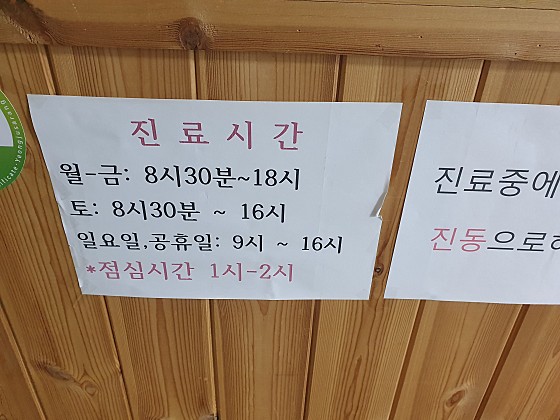 진 료 시 간
월-금: 8시30분~18시
토: 8시30분 ~ 16시
일요일,공휴일: 9시 ~ 16시
*점심시간 1시-2시
진료중에
진동으로